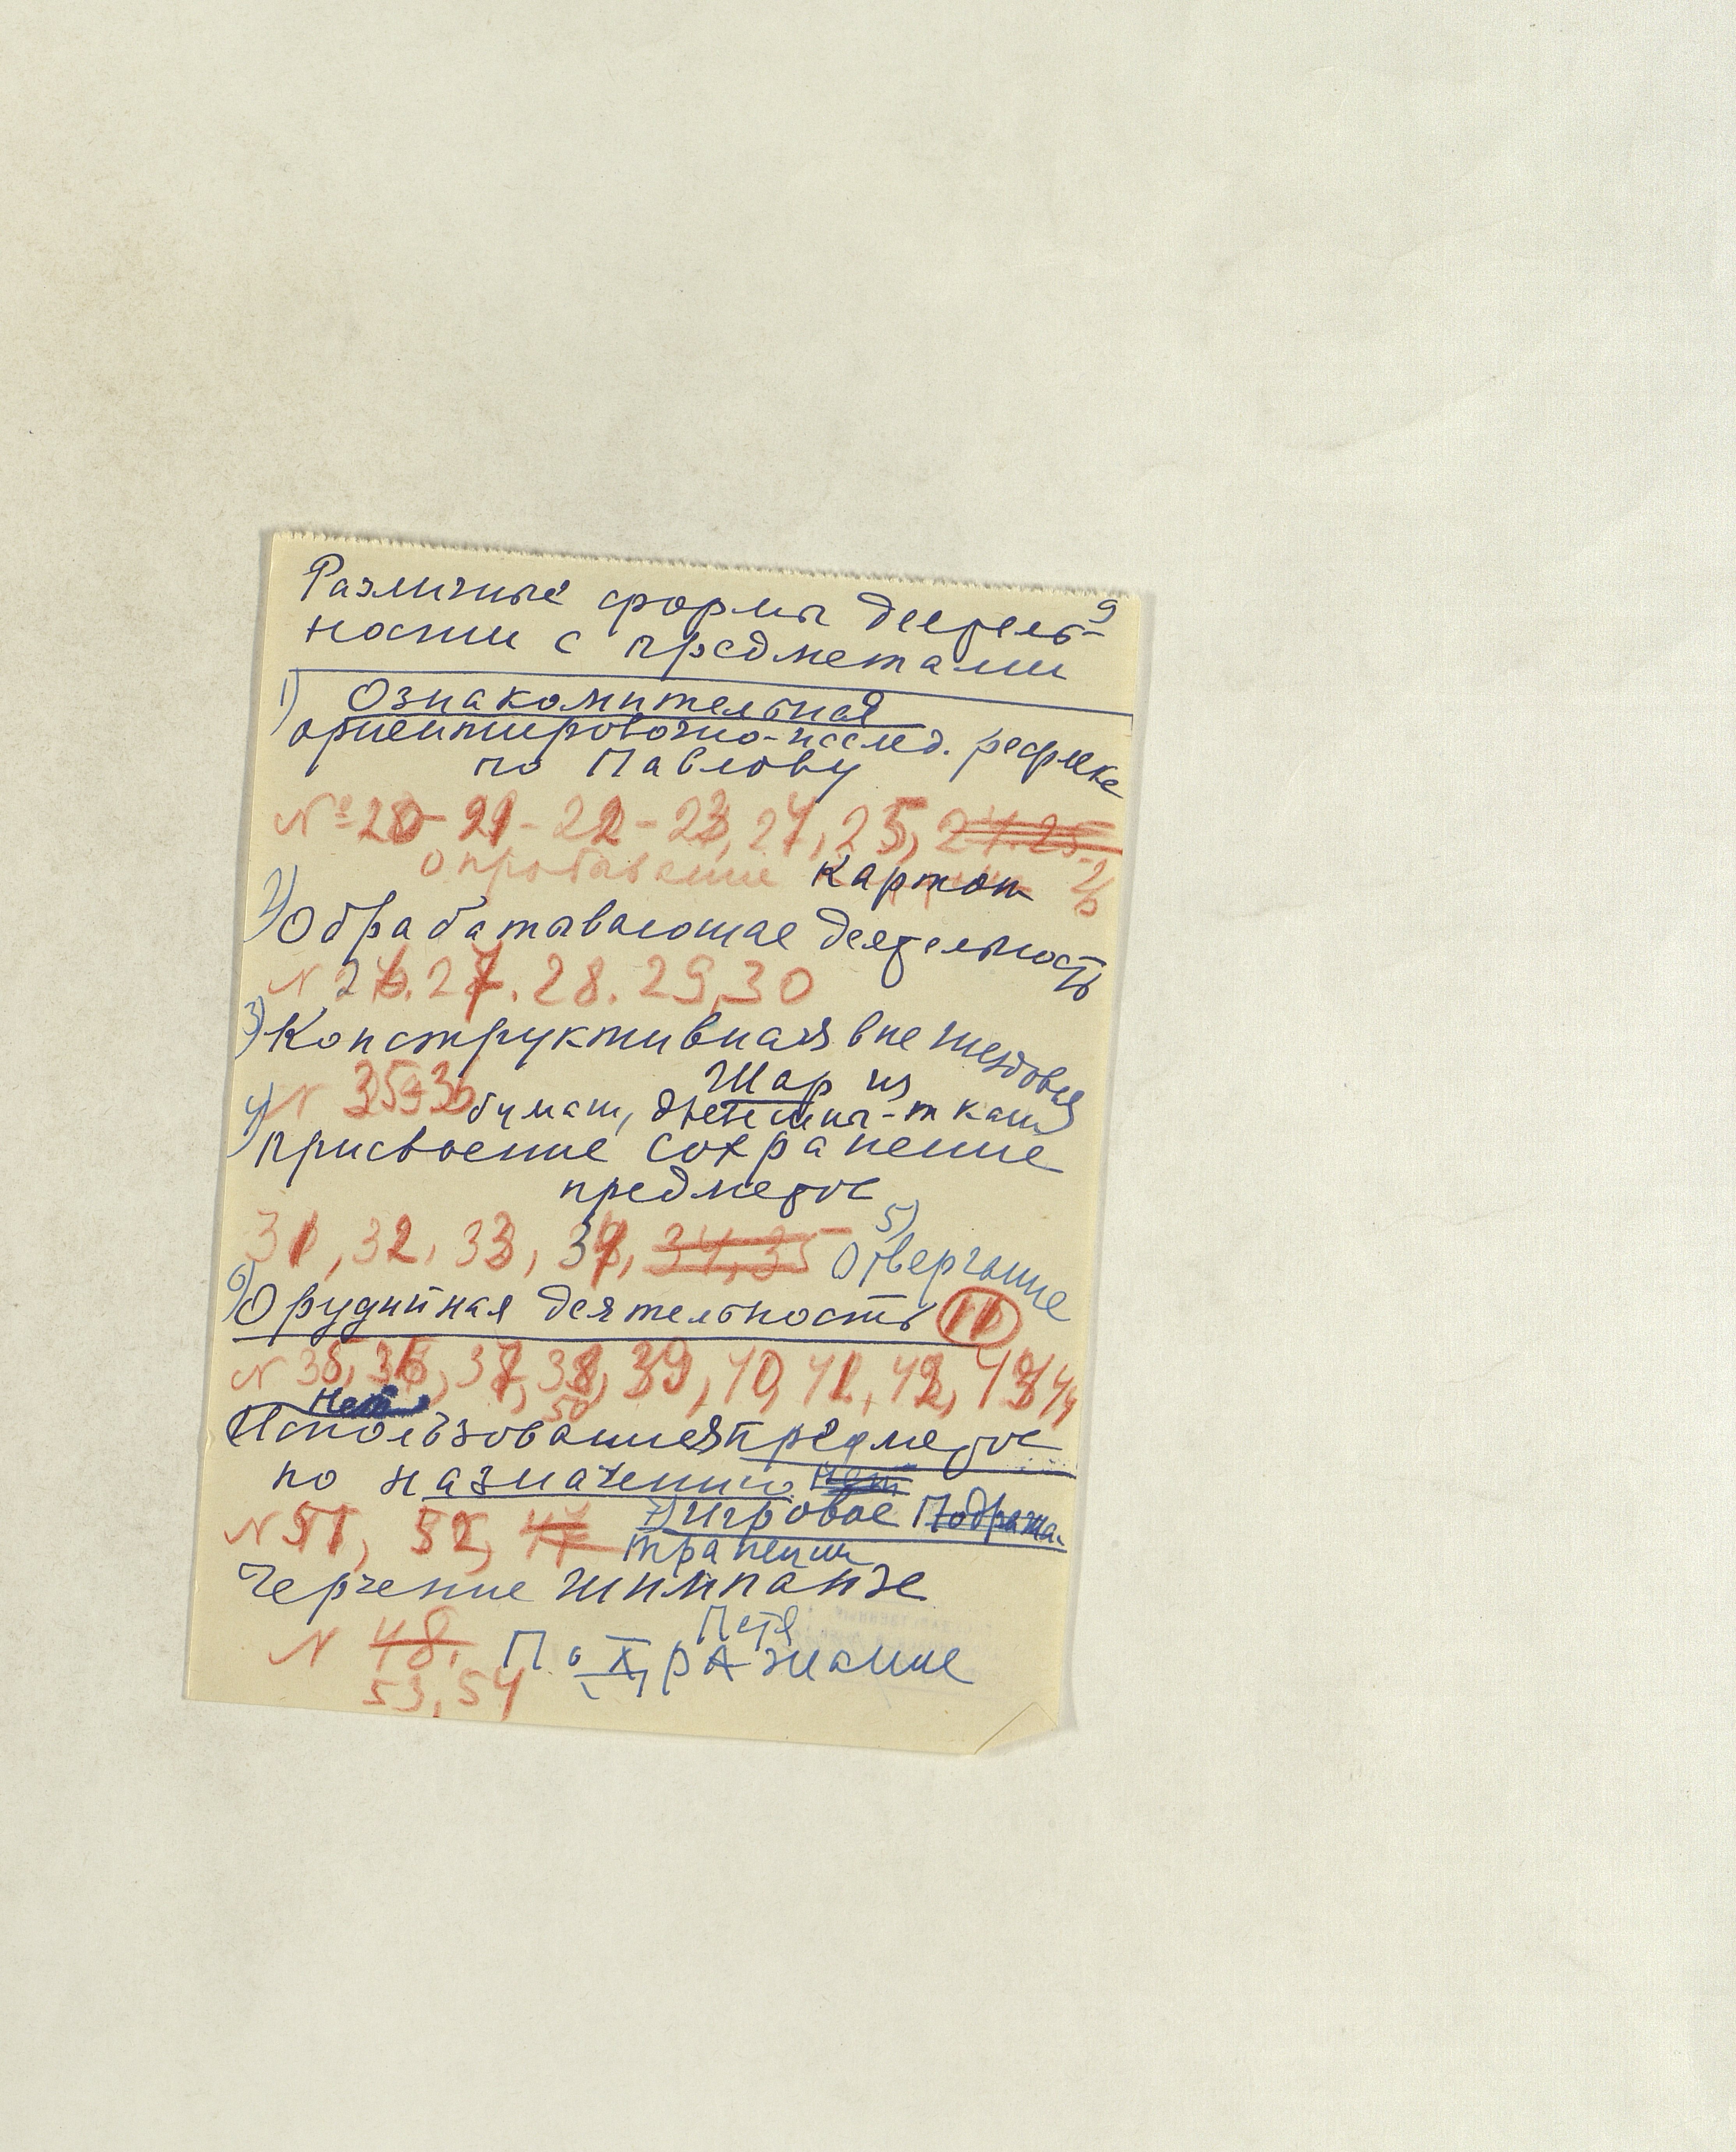 9
Различные формы деятель-
ности с предметами
1) Ознакомительная
ориентировочно-исслед. рефлекс
по Павлову
№ 20-21-22-23, 24, 25, 24.25
опробование картон 26
2) Обрабатывающая деятельность
N 26. 27. 28. 29, 30
3) Конструктивная вне гнездовья
N 35-36 Шар из
бумаги, ткани
4) Присвоение сохранение
предметов
31, 32, 33, 34, 34, 35 5) Отвергание
6) Орудийная деятельность 11
N 35, 36, 37, 38, 39, 40, 41, 42, 43, 44
Нет 50
Использование предметов
по назначению Нет
N 51, 52, 47 7) Игровое Подража-
трапеции
Черчение шимпанзе
Петя
N 48. Подражание
53, 54